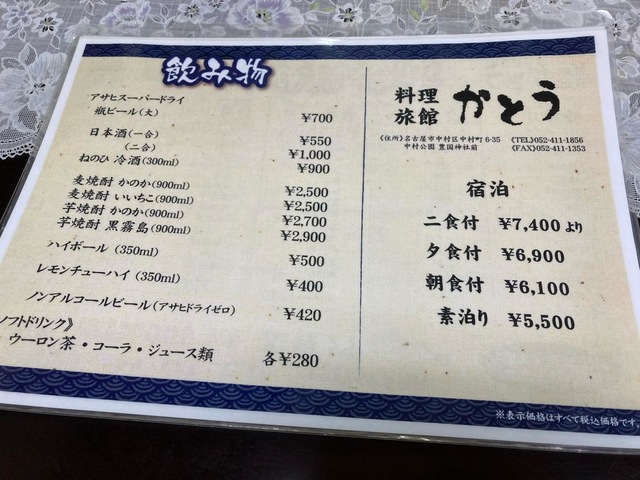 飲み物
アサヒスーパードライ
瓶ビール(大) ¥700
日本酒(一合) ¥550
(二合) ¥1,000
ねのひ 冷酒(300ml) ¥900
麦焼酎 かのか(900ml) ¥2,500
麦焼酎 いいちこ(900ml) ¥2,500
芋焼酎 かのか(900ml) ¥2,700
芋焼酎 黒霧島(900ml) ¥2,900
ハイボール (350ml) ¥500
レモンチューハイ (350ml) ¥400
ノンアルコールビール(アサヒドライゼロ) ¥420
ソフトドリンク》
ウーロン茶・コーラ・ジュース類 各¥280
料理旅館 かとう
《住所》名古屋市中村区中村町6-35 《TEL》052-411-1856
中村公園 豊国神社前 《FAX》052-411-1353
宿泊
二食付 ¥7,400より
夕食付 ¥6,900
朝食付 ¥6,100
素泊り ¥5,500
※表示価格はすべて税込価格です。